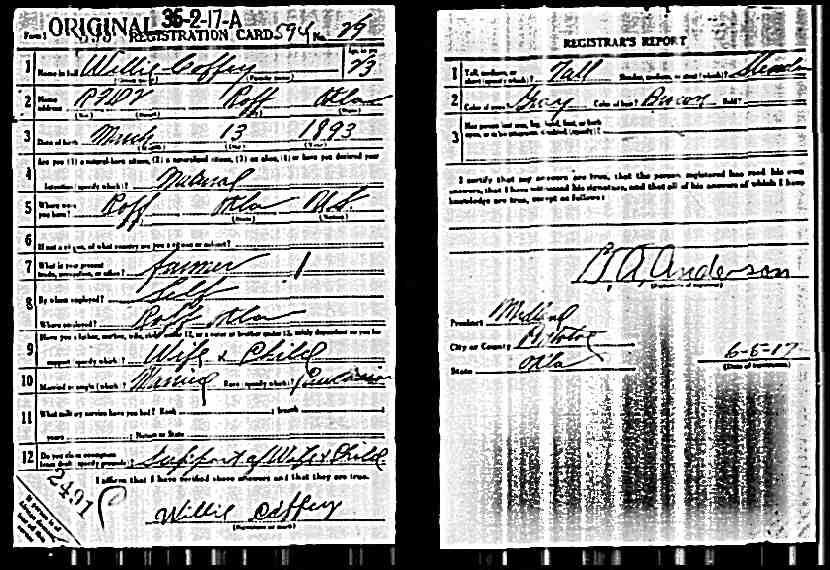 ORIGINAL 36-2-17-A
Form 1 REGISTRATION CARD 594 No. 29
1 Name in full Willie Coffey Age, in yrs 23
(Family name)
2 Home address Roff Okla
3 Date of birth March 13 1893
4 Are you (1) a natural-born citizen, (2) a naturalized citizen, (3) an alien, (4) or have you declared your
intention (specify which)? Natural
5 Where were you born? Roff Okla U.S.
6 If not a citizen, of what country are you a citizen or subject?
7 What is your present trade, occupation, or office? farmer
8 By whom employed? Self
Where employed? Roff Okla
9 Have you a father, mother, wife, child under 12, or a sister or brother under 12, solely dependent on you for
support (specify which)? Wife & Child
10 Married or single (which)? Married Race (specify which)? Caucasian
11 What military service have you had? Rank ; branch ;
years ; Nation or State
12 Do you claim exemption from draft (specify grounds)? Support of Wife & Child
I affirm that I have verified above answers and that they are true.
2491
Willie Coffey
(Signature or mark)
REGISTRAR'S REPORT
1 Tall, medium, or short (specify which)? Tall Slender, medium, or stout (which)? Slender
2 Color of eyes? Gray Color of hair? Brown Bald?
3 Has person lost arm, leg, hand, foot, or both
eyes, or is he otherwise disabled (specify)?
I certify that my answers are true, that the person registered has read his own
answers, that I have witnessed his signature, and that all of his answers of which I have
knowledge are true, except as follows:
Anderson
(Signature of registrar)
Precinct Midland
City or County Pontotoc
State Okla
6-5-17
(Date of registration)